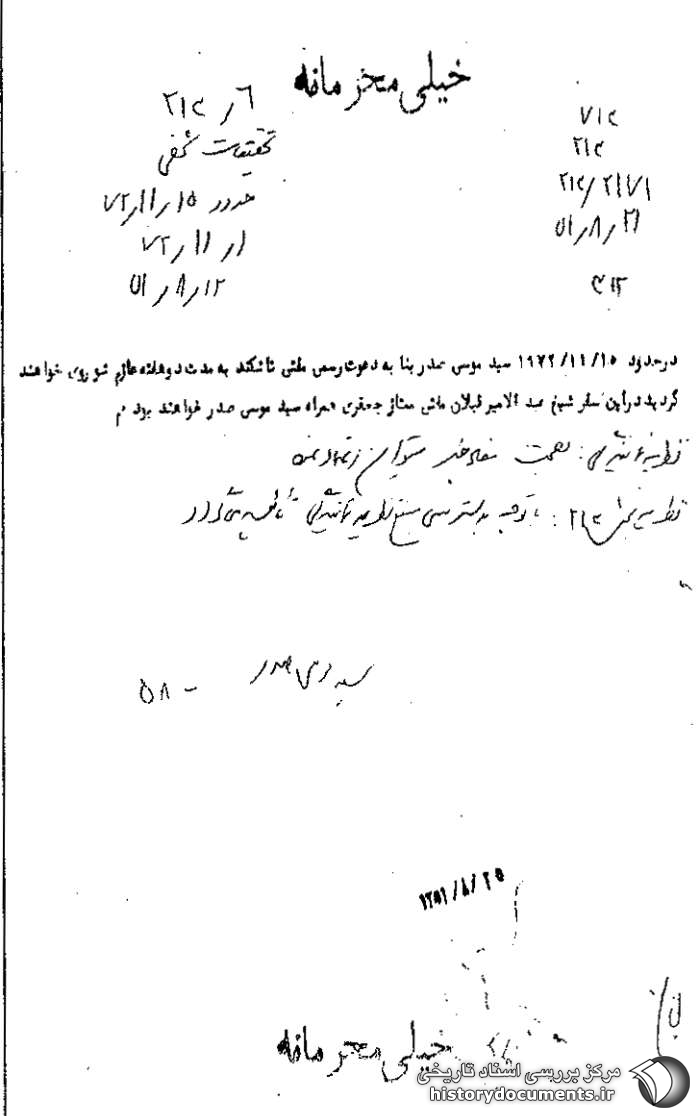 خیلی محرمانه
۷۱۲
۲۱۲
۲۱۲/۲۱۷۱
۵۱٫۸٫۲۱
۶٫۲۱۲
تحقیقات شخصی
حدود ۷۲٫۱۱٫۱۵
۷۲٫۱۱٫۱
۵۱٫۸٫۱۲
درحدود ۱۹۷۲/۱۱/۱۵ سید موسی صدر بنا به دعوت رسمی مفتی تاشکند به مدت دو هفته عازم شوروی خواهند
گردید در این سفر شیخ عبد الامیر قبلان مفتی ممتاز جعفری همراه سید موسی صدر خواهند بود م
نظریه : صحت مفاد خبر
نظریه ۲۱۲ : با توجه به دسترسی منبع نظریه تأیید
سید موسی صدر
۵۸ -
۱۳۵۱/۸/۲۵
خیلی محرمانه
مرکز بررسی اسناد تاریخی
historydocuments.ir